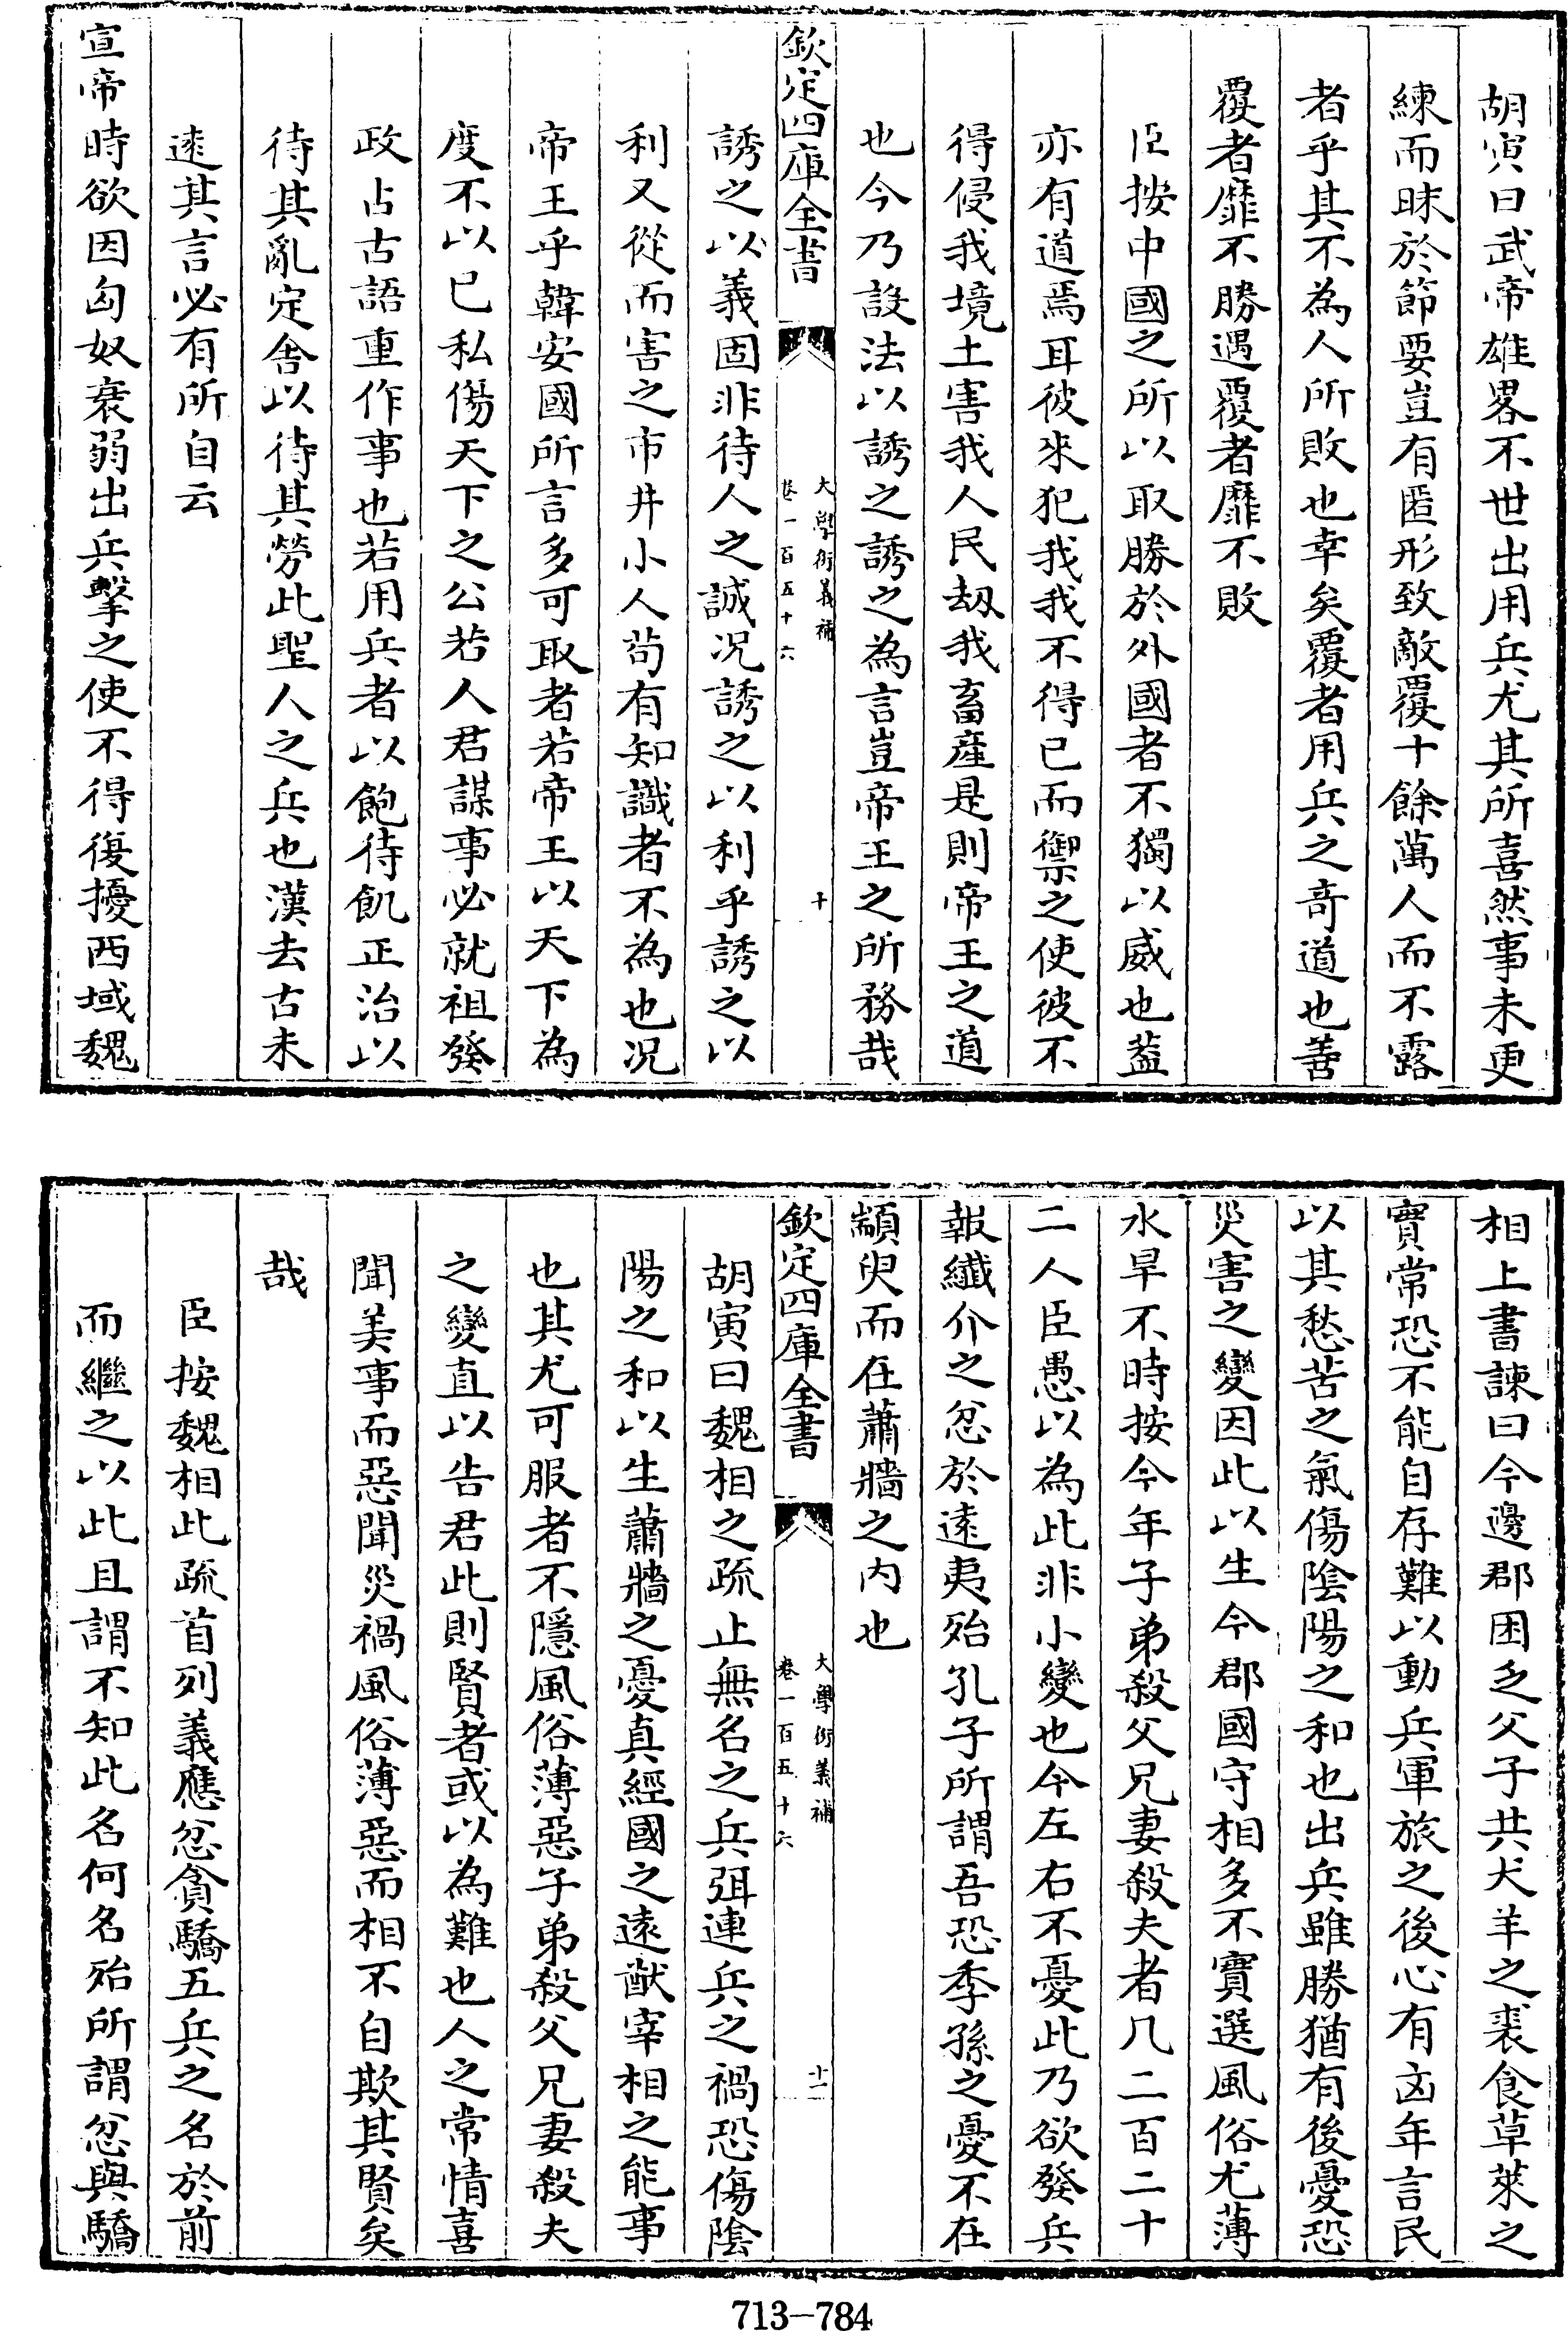 胡寅曰武帝雄畧不世出用兵尤其所喜然事未更
練而昧於節要豈有匿形致敵覆十餘萬人而不露
者乎其不為人所敗也幸矣覆者用兵之竒道也善
覆者靡不勝遇覆者靡不敗
臣按中國之所以取勝於外國者不獨以威也葢
亦有道焉耳彼來犯我我不得已而禦之使彼不
得侵我境土害我人民刼我畜產是則帝王之道
也今乃設法以誘之誘之為言豈帝王之所務哉
欽定四庫全書
大學衍義補
卷一百五十六
十
誘之以義固非待人之誠况誘之以利乎誘之以
利又從而害之市井小人苟有知識者不為也况
帝王乎韓安國所言多可取者若帝王以天下為
度不以已私傷天下之公若人君謀事必就祖發
政占古語重作事也若用兵者以飽待飢正治以
待其亂定舍以待其勞此聖人之兵也漢去古未
逺其言必有所自云
宣帝時欲因匈奴衰弱出兵擊之使不得復擾西域魏
相上書諫曰今邊郡困乏父子共犬羊之裘食草萊之
實常恐不能自存難以動兵軍旅之後必有凶年言民
以其愁苦之氣傷陰陽之和也出兵雖勝猶有後憂恐
災害之變因此以生今郡國守相多不實選風俗尤薄
水旱不時按今年子弟殺父兄妻殺夫者凡二百二十
二人臣愚以為此非小變也今左右不憂此乃欲發兵
報纖介之忿於逺夷殆孔子所謂吾恐季孫之憂不在
顓臾而在蕭牆之内也
欽定四庫全書
大學衍義補
卷一百五十六
十一
胡寅曰魏相之疏止無名之兵弭連兵之禍恐傷陰
陽之和以生蕭牆之憂真經國之遠猷宰相之能事
也其尤可服者不隱風俗薄惡子弟殺父兄妻殺夫
之變直以告君此則賢者或以為難也人之常情喜
聞美事而惡聞災禍風俗薄惡而相不自欺其賢矣
哉
臣按魏相此疏首列義應忿貪驕五兵之名於前
而繼之以此且謂不知此名何名殆所謂忿與驕
713-784